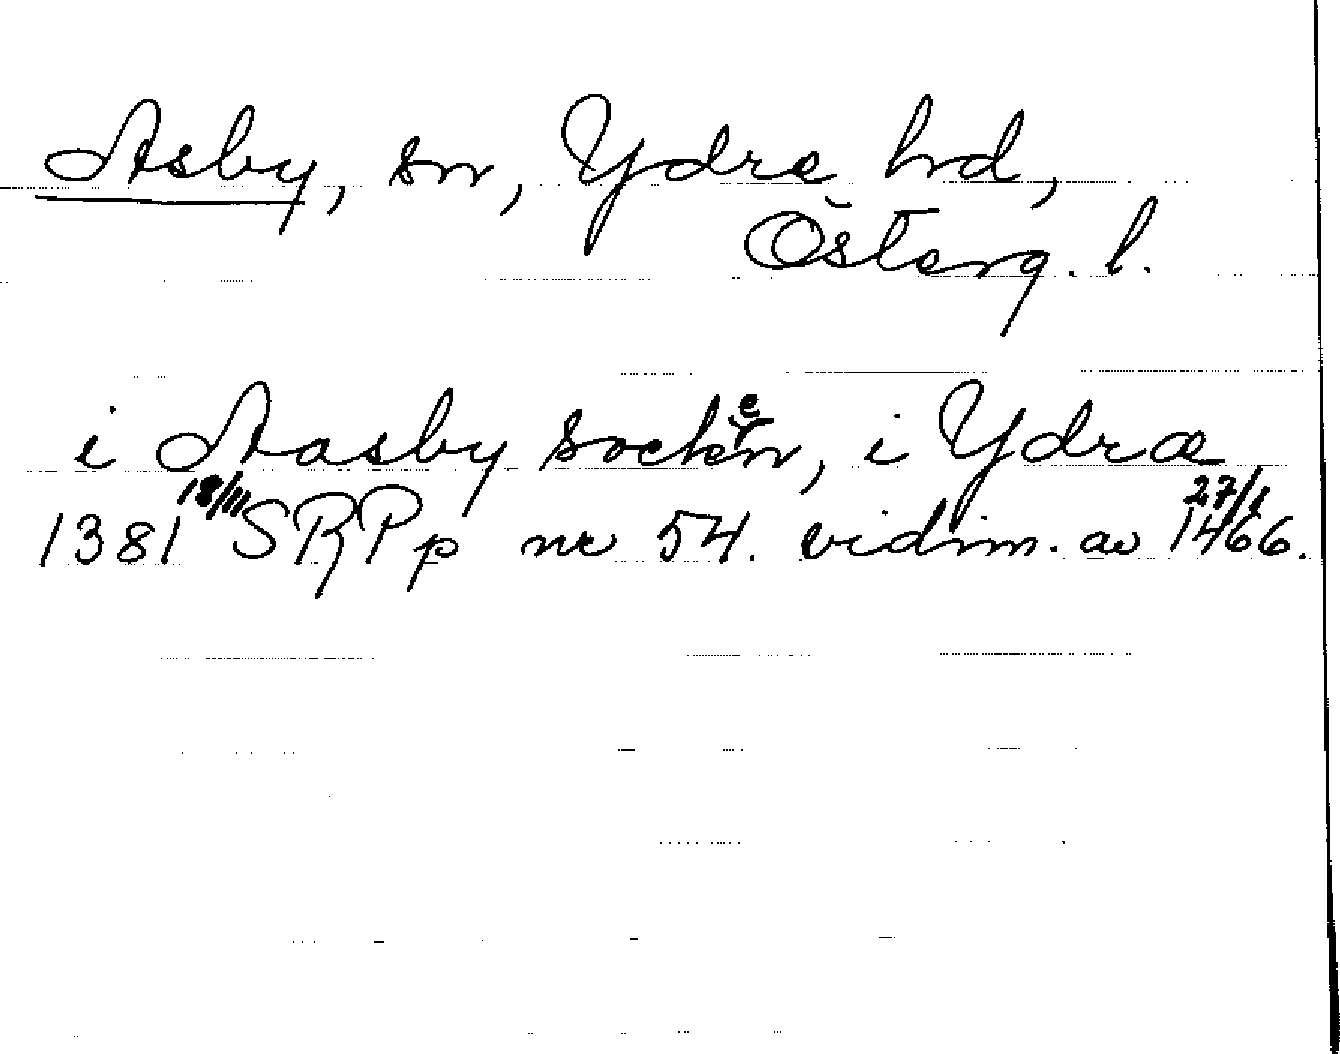 Asby, sn, Ydre hd,
Österg. l.
i Aasby socken, i Ydræ
1381 18/11 SRPp nr 54. vidim. av 27/1 1466.